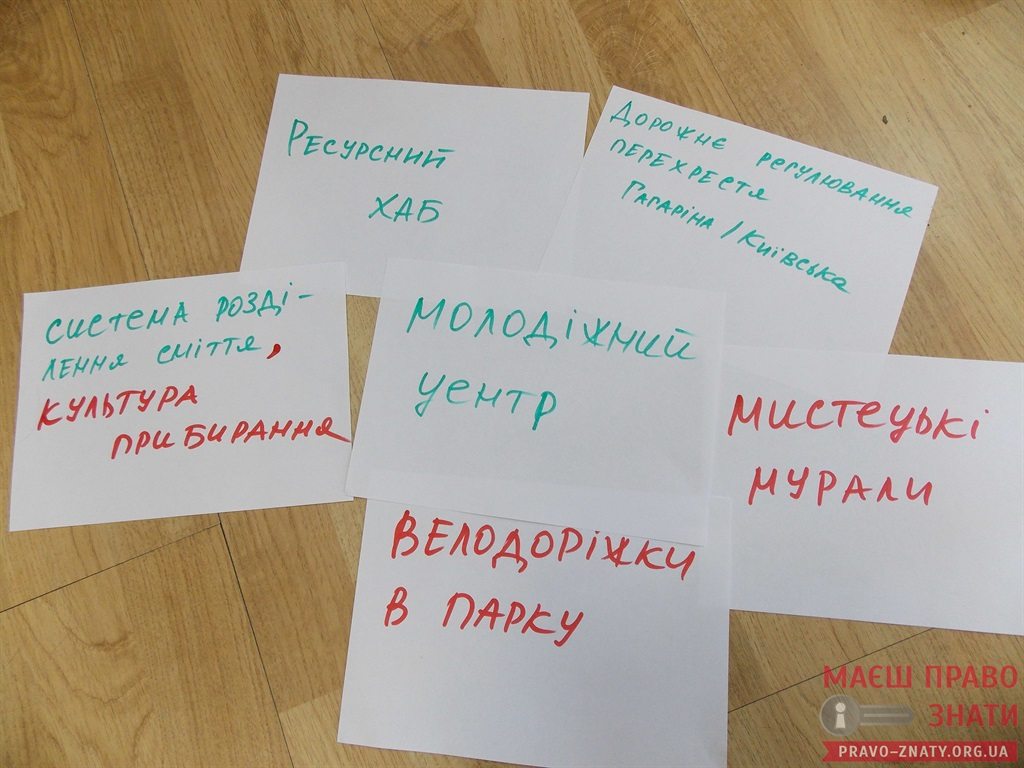 Ресурсний
хаб
Дорожнє регулювання
перехрестя
Гагаріна / Київська
система розді-
лення сміття,
культура
прибирання
молодіжний
центр
мистецькі
мурали
Велодоріжки
в парку
МАЄШ ПРАВО
ЗНАТИ
PRAVO-ZNATY.ORG.UA